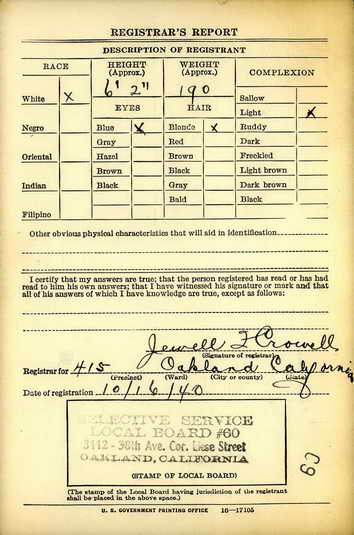 REGISTRAR'S REPORT
DESCRIPTION OF REGISTRANT
RACE HEIGHT (Approx.) WEIGHT (Approx.) COMPLEXION
6' 2" 190
White X EYES HAIR Sallow
Light X
Negro Blue X Blonde X Ruddy
Gray Red Dark
Oriental Hazel Brown Freckled
Brown Black Light brown
Indian Black Gray Dark brown
Bald Black
Filipino
Other obvious physical characteristics that will aid in identification
I certify that my answers are true; that the person registered has read or has had
read to him his own answers; that I have witnessed his signature or mark and that
all of his answers of which I have knowledge are true, except as follows:
Jewell F Crowell
(Signature of registrar)
Registrar for 415 Oakland California
(Precinct) (Ward) (City or county) (State)
Date of registration 10/16/40
SELECTIVE SERVICE
LOCAL BOARD #60
3112 - 38th Ave. Cor. Liese Street
OAKLAND, CALIFORNIA
(STAMP OF LOCAL BOARD)
(The stamp of the Local Board having jurisdiction of the registrant
shall be placed in the above space.)
U. S. GOVERNMENT PRINTING OFFICE 16—17105